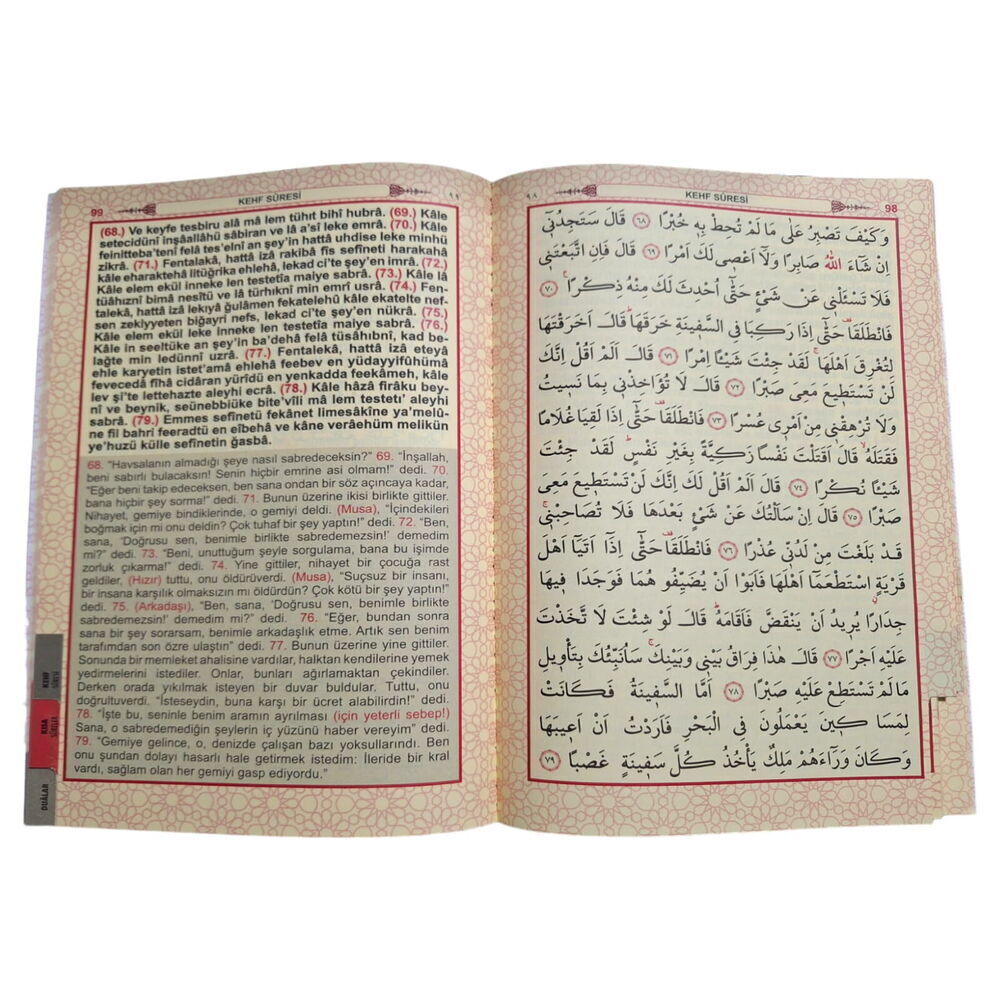 99
KEHF SÛRESİ
٩٩
(68.) Ve keyfe tesbiru alâ mâ lem tühıt bihî hubrâ. (69.) Kâle
setecidünî inşâallâhü sâbiran ve lâ a'sî leke emrâ. (70.) Kâle
feinitteba'tenî felâ tes'elnî an şey'in hattâ uhdise leke minhü
zikrâ. (71.) Fentalakâ, hattâ izâ rakibâ fis sefîneti harakahâ
kâle eharaktehâ litüğrika ehlehâ, lekad ci'te şey'en imrâ. (72.)
Kâle elem ekül inneke len testetîa maiye sabrâ. (73.) Kâle lâ
tüâhıznî bimâ nesîtü ve lâ türhıknî min emrî usrâ. (74.) Fen-
talekâ, hattâ izâ lekıyâ ğulâmen fekatelehû kâle ekatelte nef-
sen zekiyyeten biğayri nefs, lekad ci'te şey'en nükrâ. (75.)
Kâle elem ekül leke inneke len testetîa maiye sabrâ. (76.)
Kâle in seeltüke an şey'in ba'dehâ felâ tüsâhıbnî, kad be-
lağte min ledünnî uzrâ. (77.) Fentalekâ, hattâ izâ eteyâ
ehle karyetin istet'amâ ehlehâ feebev en yüdayyifûhümâ
fevecedâ fîhâ cidâran yürîdü en yenkadda feekâmeh, kâle
lev şi'te lettehazte aleyhi ecrâ. (78.) Kâle hâzâ firâku bey-
nî ve beynik, seünebbiüke bite'vîli mâ lem testetı' aleyhi
sabrâ. (79.) Emmes sefînetü fekânet limesâkîne ya'melû-
ne fil bahri feeradtü en eîbehâ ve kâne verâehüm melikün
ye'huzü külle sefînetin ğasbâ.
68. "Havsalanın almadığı şeye nasıl sabredeceksin?" 69. "İnşallah,
beni sabırlı bulacaksın! Senin hiçbir emrine asi olmam!" dedi. 70.
"Eğer beni takip edeceksen, ben sana ondan bir söz açıncaya kadar,
bana hiçbir şey sorma!" dedi. 71. Bunun üzerine ikisi birlikte gittiler.
Nihayet, gemiye bindiklerinde, o gemiyi deldi. (Musa), "İçindekileri
boğmak için mi onu deldin? Çok tuhaf bir şey yaptın!" dedi. 72. "Ben,
sana, 'Doğrusu sen, benimle birlikte sabredemezsin!' demedim
mi?" dedi. 73. "Beni, unuttuğum şeyle sorgulama, bana bu işimde
zorluk çıkarma!" dedi. 74. Yine gittiler, nihayet bir çocuğa rast
geldiler, (Hızır) tuttu, onu öldürüverdi. (Musa), "Suçsuz bir insanı,
bir insana karşılık olmaksızın mı öldürdün? Çok kötü bir şey yaptın!"
dedi. 75. (Arkadaşı), "Ben, sana, 'Doğrusu sen, benimle birlikte
sabredemezsin!' demedim mi?" dedi. 76. "Eğer, bundan sonra
sana bir şey sorarsam, benimle arkadaşlık etme. Artık sen benim
tarafımdan son özre ulaştın" dedi. 77. Bunun üzerine yine gittiler.
Sonunda bir memleket ahalisine vardılar, halktan kendilerine yemek
yedirmelerini istediler. Onlar, bunları ağırlamaktan çekindiler.
Derken orada yıkılmak isteyen bir duvar buldular. Tuttu, onu
doğrultuverdi. "İsteseydin, buna karşı bir ücret alabilirdin!" dedi.
78. "İşte bu, seninle benim aramın ayrılması (için yeterli sebep!)
Sana, o sabredemediğin şeylerin iç yüzünü haber vereyim" dedi.
79. "Gemiye gelince, o, denizde çalışan bazı yoksullarındı. Ben
onu şundan dolayı hasarlı hale getirmek istedim: İleride bir kral
vardı, sağlam olan her gemiyi gasp ediyordu."
KEHF
SÛRESİ
KISA
SÛRELER
DUÂLAR
٩٨
KEHF SÛRESİ
98
وَكَيْفَ تَصْبِرُ عَلٰى مَا لَمْ تُحِطْ بِهٖ خُبْرًا ﴿٦٨﴾ قَالَ سَتَجِدُنٖٓي
اِنْ شَٓاءَ اللّٰهُ صَابِرًا وَلَٓا اَعْصٖي لَكَ اَمْرًا ﴿٦٩﴾ قَالَ فَاِنِ اتَّبَعْتَنٖي
فَلَا تَسْـَٔلْنٖي عَنْ شَيْءٍ حَتّٰٓى اُحْدِثَ لَكَ مِنْهُ ذِكْرًا ﴿٧٠﴾
فَانْطَلَقَا حَتّٰٓى اِذَا رَكِبَا فِي السَّفٖينَةِ خَرَقَهَا قَالَ اَخَرَقْتَهَا
لِتُغْرِقَ اَهْلَهَا لَقَدْ جِئْتَ شَيْـًٔا اِمْرًا ﴿٧١﴾ قَالَ اَلَمْ اَقُلْ اِنَّكَ
لَنْ تَسْتَطٖيعَ مَعِيَ صَبْرًا ﴿٧٢﴾ قَالَ لَا تُؤَاخِذْنٖي بِمَا نَسٖيتُ
وَلَا تُرْهِقْنٖي مِنْ اَمْرٖي عُسْرًا ﴿٧٣﴾ فَانْطَلَقَا حَتّٰٓى اِذَا لَقِيَا غُلَامًا
فَقَتَلَهُ قَالَ اَقَتَلْتَ نَفْسًا زَكِيَّةً بِغَيْرِ نَفْسٍ لَقَدْ جِئْتَ
شَيْـًٔا نُكْرًا ﴿٧٤﴾ قَالَ اَلَمْ اَقُلْ لَكَ اِنَّكَ لَنْ تَسْتَطٖيعَ مَعِيَ
صَبْرًا ﴿٧٥﴾ قَالَ اِنْ سَاَلْتُكَ عَنْ شَيْءٍ بَعْدَهَا فَلَا تُصَاحِبْنٖي
قَدْ بَلَغْتَ مِنْ لَدُنّٖي عُذْرًا ﴿٧٦﴾ فَانْطَلَقَا حَتّٰٓى اِذَٓا اَتَيَٓا اَهْلَ
قَرْيَةٍ اسْتَطْعَمَٓا اَهْلَهَا فَاَبَوْا اَنْ يُضَيِّفُوهُمَا فَوَجَدَا فٖيهَا
جِدَارًا يُرٖيدُ اَنْ يَنْقَضَّ فَاَقَامَهُ قَالَ لَوْ شِئْتَ لَتَّخَذْتَ
عَلَيْهِ اَجْرًا ﴿٧٧﴾ قَالَ هٰذَا فِرَاقُ بَيْنٖي وَبَيْنِكَ سَاُنَبِّئُكَ بِتَأْوٖيلِ
مَا لَمْ تَسْتَطِعْ عَلَيْهِ صَبْرًا ﴿٧٨﴾ اَمَّا السَّفٖينَةُ فَكَانَتْ
لِمَسَاكٖينَ يَعْمَلُونَ فِي الْبَحْرِ فَاَرَدْتُ اَنْ اَعٖيبَهَا
وَكَانَ وَرَٓاءَهُمْ مَلِكٌ يَأْخُذُ كُلَّ سَفٖينَةٍ غَصْبًا ﴿٧٩﴾